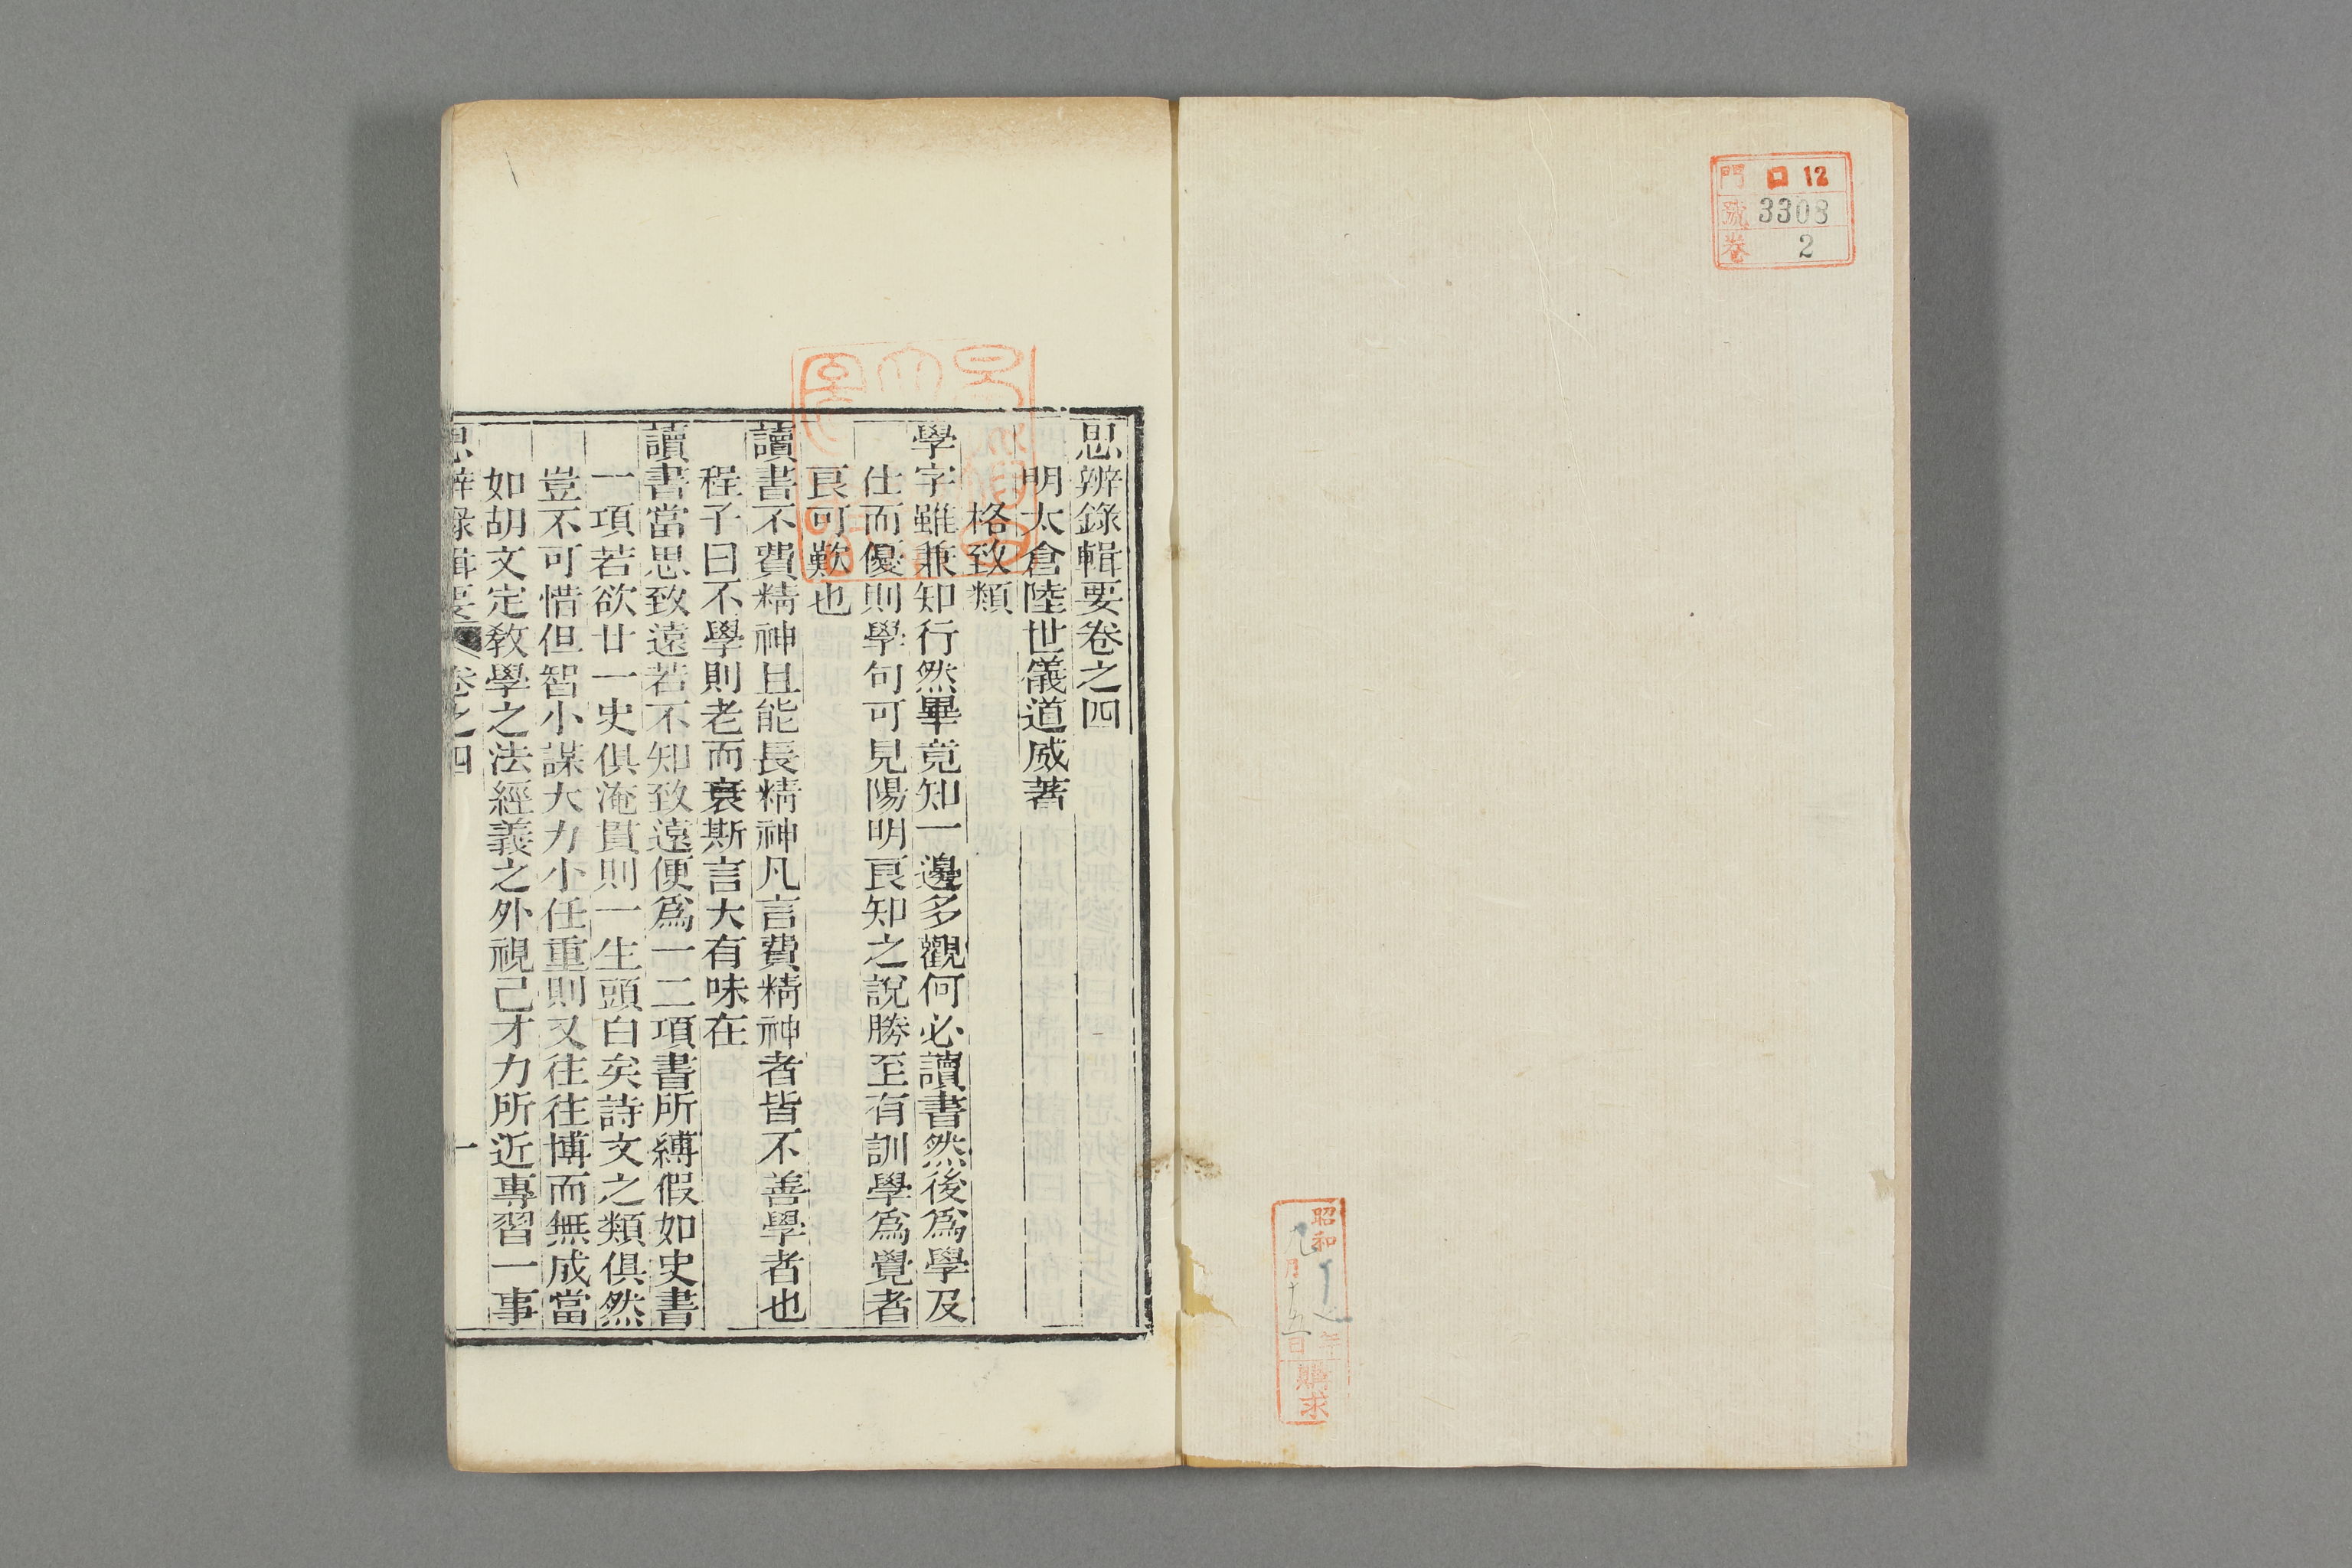 門 口 12
號 3308
卷 2
昭和
年
九月十五日
購求
思辨錄輯要卷之四
明太倉陸世儀道威著
格致類
學字雖兼知行然畢竟知一邊多觀何必讀書然後爲學及
仕而優則學句可見陽明良知之說勝至有訓學爲覺者
良可歎也
讀書不費精神且能長精神凡言費精神者皆不善學者也
程子曰不學則老而衰斯言大有味在
讀書當思致遠若不知致遠便爲一二項書所縛假如史書
一項若欲廿一史俱淹貫則一生頭白矣詩文之類俱然
豈不可惜但智小謀大力小任重則又往往博而無成當
如胡文定敎學之法經義之外視己才力所近專習一事
思辨錄輯要 卷之四 一